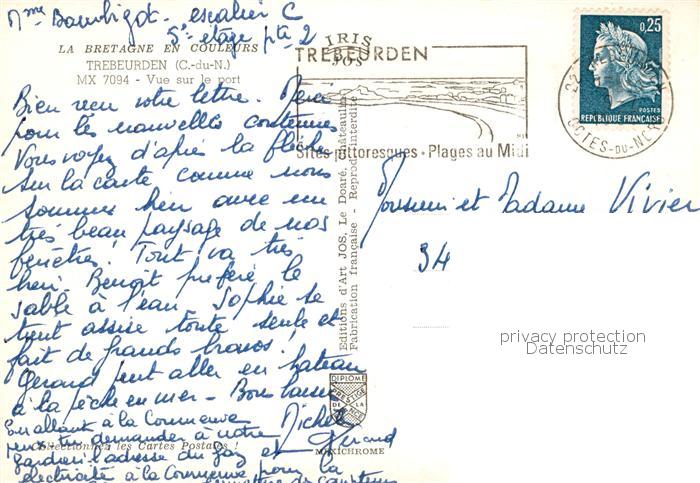 Mme Bombigot. escalier C
5e étage pte 2
LA BRETAGNE EN COULEURS
TREBEURDEN (C.-du-N.)
MX 7094 - Vue sur le port
IRIS
JOS
TREBEURDEN
Sites pittoresques - Plages au Midi
22
CÔTES-DU-NORD
0,25
POSTES
REPUBLIQUE FRANÇAISE
Bien reçu votre lettre. Merci
pour les nouvelles contenues
Vous voyez d'après la flèche
sur la carte comme nous
sommes bien avec un
très beau paysage de nos
fenêtres! Tout va très
bien. Benoît préfère le
sable à l'eau. Sophie se
tient assise toute seule et
fait de grands bravos!
Gérard peut aller en bateau
à la pêche en mer - Bons baisers
Michel
Gérard
En allant à la Courneuve
peux-tu demander à notre
gardien l'adresse du gaz et
électricité à la Courneuve pour la
Collectionnez les Cartes Postales !
Editions d'Art JOS, Le Doaré, Châteaulin
Fabrication française - Reproduction interdite
DIPLOME
PRESTIGE
DE LA
FRANCE
MEXICHROME
Monsieur et Madame Vivier
34
privacy protection
Datenschutz